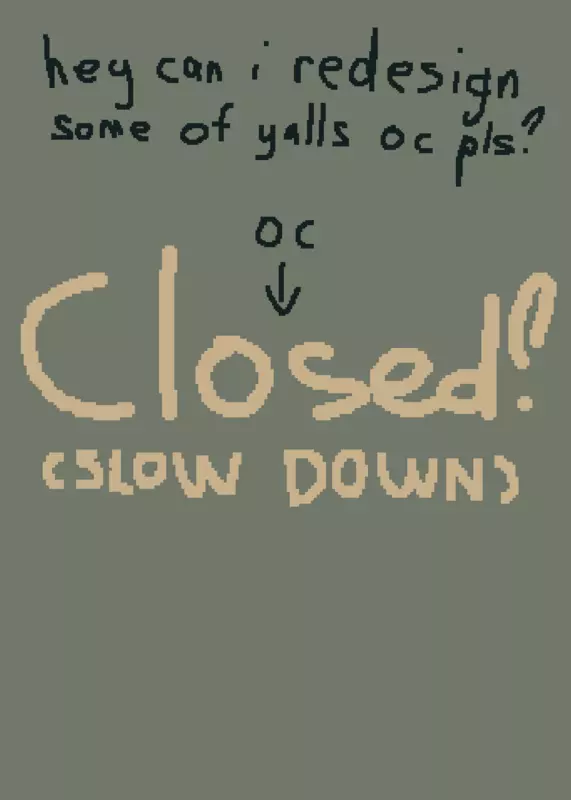 hey can i redesign
some of yalls oc pls?
oc
Closed?
(SLOW DOWN)